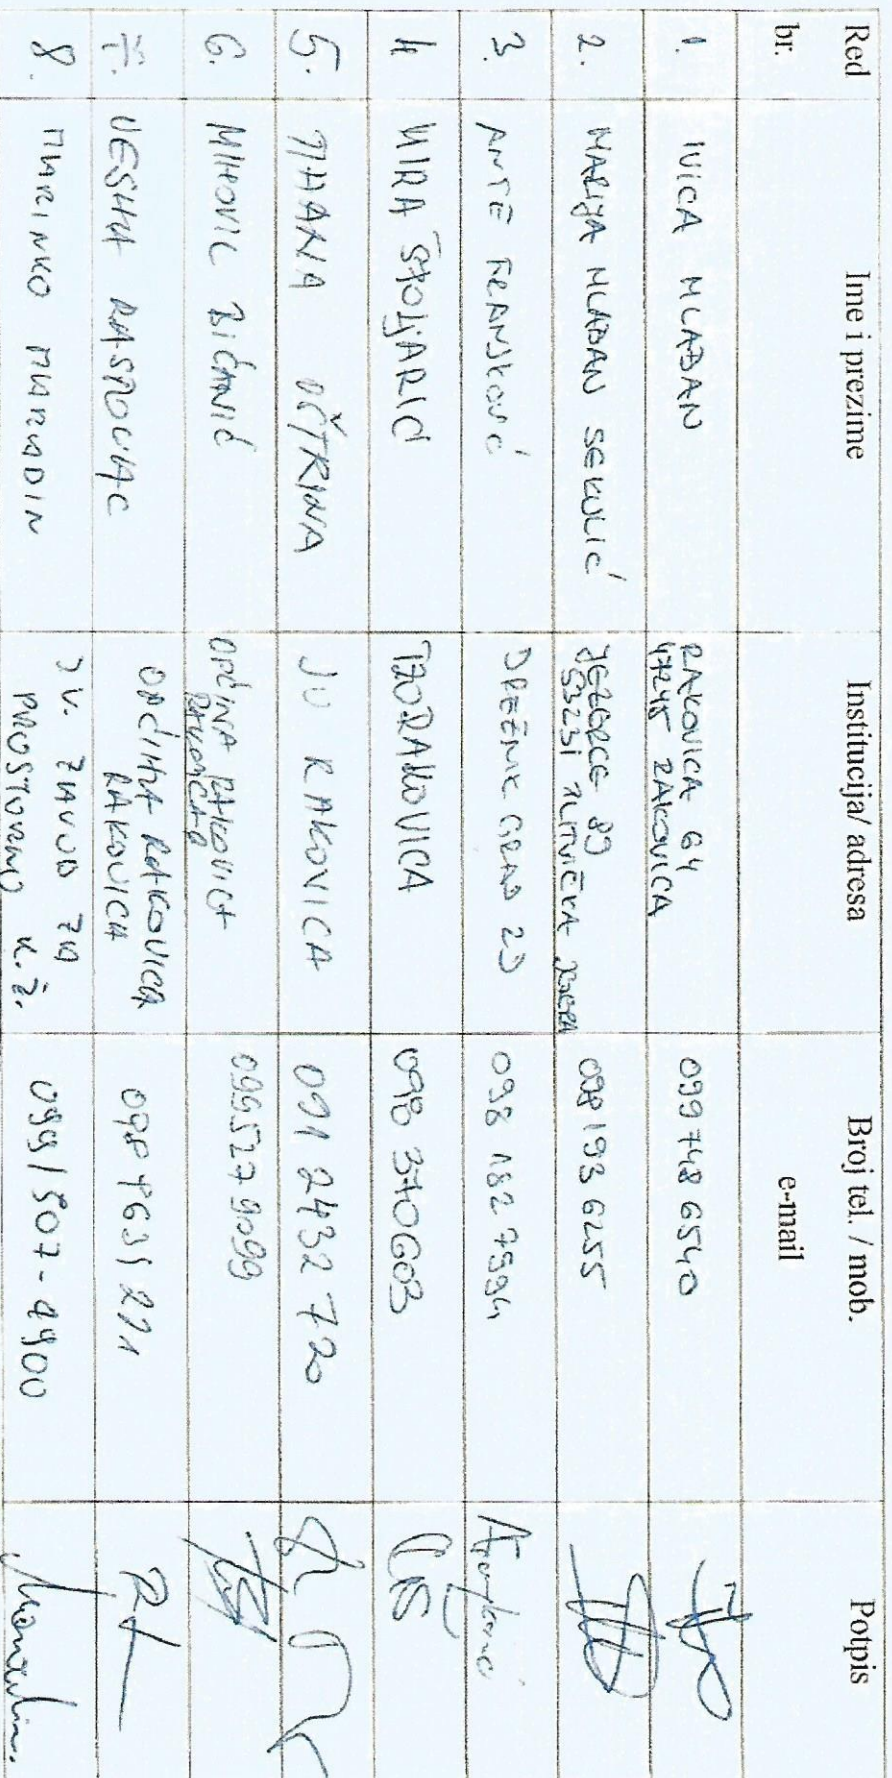 Red br. Ime i prezime Institucija/ adresa Broj tel. / mob. e-mail Potpis
1. IVICA MLAĐAN RAKOVICA 64 47245 RAKOVICA 099 748 6540
2. MARIJA MLAĐAN SEKULIĆ JEZERCE 89 53231 PLITVIČKA JEZERA 098 193 6255
3. ANTE FRANJKOVIĆ DREŽNIK GRAD 23 098 182 7594
4 MIRA ŠPOLJARIĆ TZO RAKOVICA 098 370603
5. TIHANA OŠTRINA JU RAKOVICA 091 2432 720
6. MIHOVIL BIĆANIĆ OPĆINA RAKOVICA 0995279099
7. VESNA RASPOVIĆ OPĆINA RAKOVICA RAKOVICA 098
8. MARINKO MARADIN JV. ZAVOD ZA PROSTORNO K.Ž. 099/507-4900